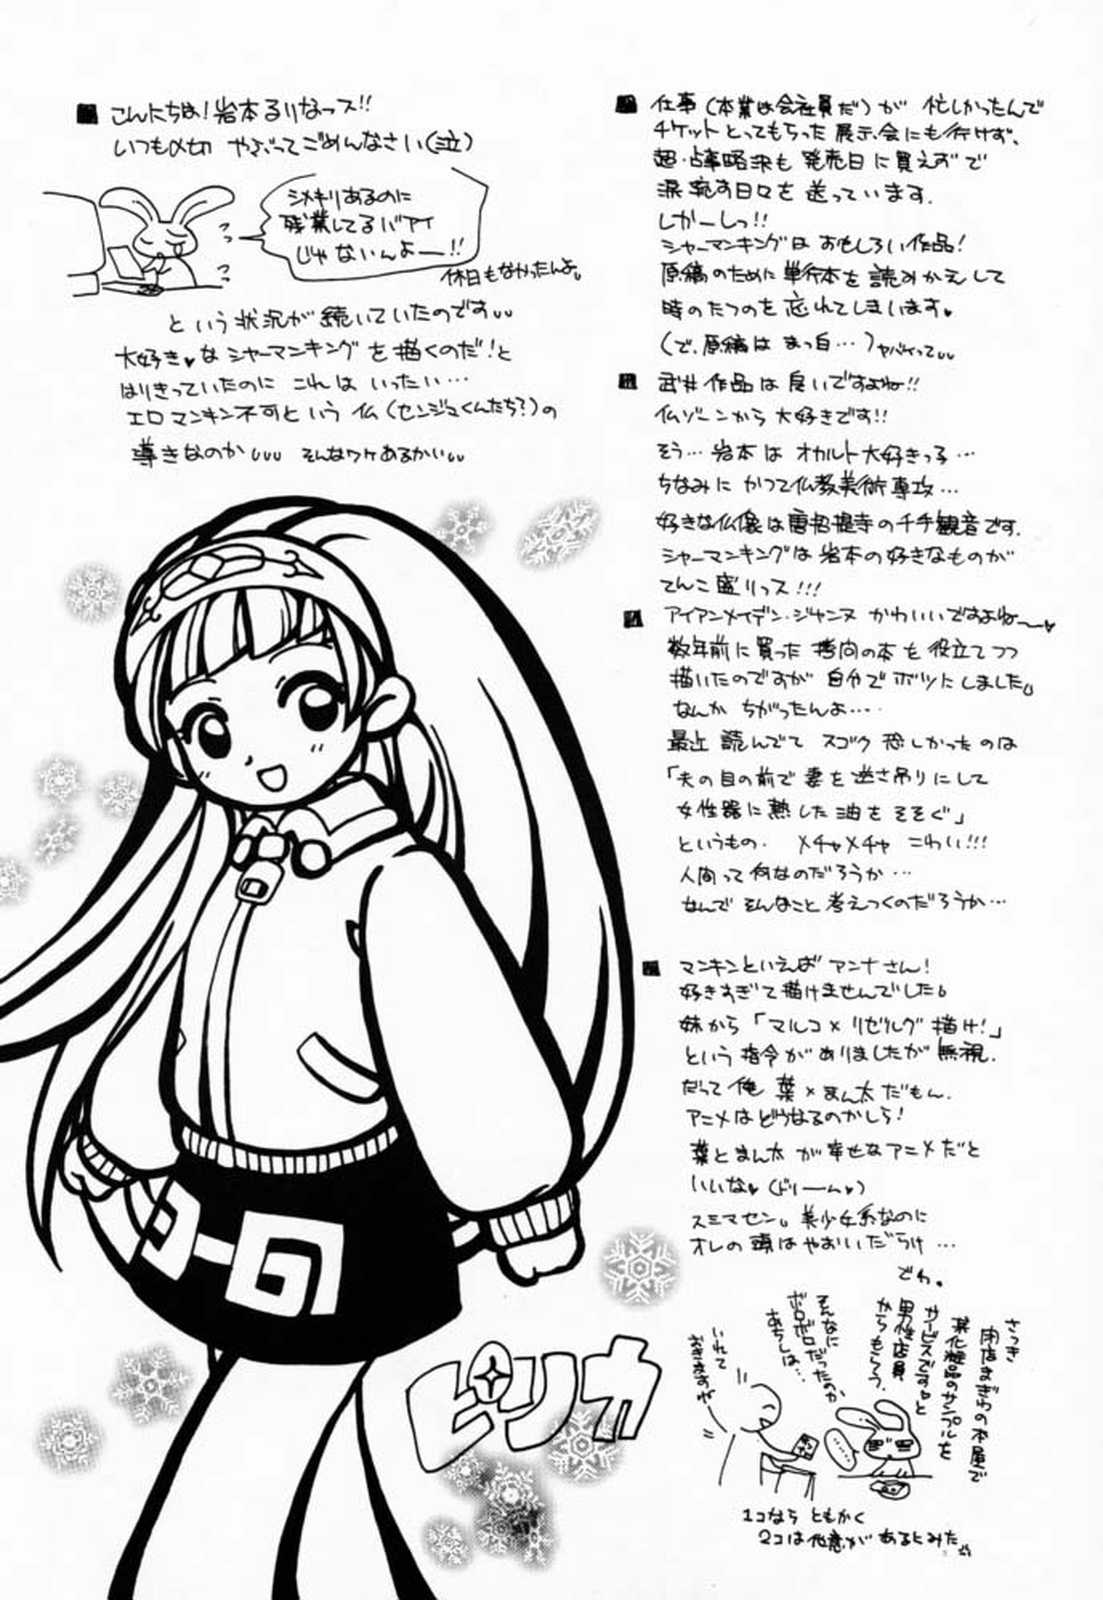 こんにちは！岩本るりなっス!!
いつも〆切 やぶってごめんなさい(泣)
シメキリあるのに
残業してるバアイ
じゃないんよー!!
休日もなかったんよ。
という状況が続いていたのです
大好き♥なシャーマンキングを描くのだ！と
はりきっていたのに これは いったい…
エロマンキン不可という仏(センジマくんたち?)の
導きなのか そんなワケあるかい
仕事(本業は会社員だ)が 忙しかったんで
チケットとってもらった展示会にも行けず、
超・占事略決も 発売日に買えずで
涙 流す日々を 送っています.
しがーしっ!!
シャーマンキングは おもしろい作品！
原稿のために単行本を 読みかえして
時のたつのを 忘れてしまいます♥
(で、原稿は まっ白…)ヤバイって
武井作品は 良いですよね!!
仏ゾーンから 大好きです!!
そう…岩本は オカルト大好きっ子…
ちなみに かつて仏教美術専攻…
好きな仏像は唐招提寺の千手観音です.
シャーマンキングは岩本の好きなものが
てんこ盛りっス!!!
アイアンメイデン・ジャンヌ かわいいですよねー♥
数年前に買った 拷問の本も 役立てつつ
描いたのですが 自分でボツにしました。
なんか ちがったんよ…
最近 読んでて スゴク 恐しかったのは
「夫の目の前で 妻を逆さ吊りにして
女性器に熱した 油を そそぐ」
というもの. メチャメチャ こわい!!!
人間って何なのだろうか…
なんで そんなこと 考えつくのだろうか…
マンキンといえば アンナさん！
好きすぎて描けませんでした。
妹から「マルコ×リゼルグ 描け！」
という指令がありましたが 無視.
だって俺 葉×まん太だもん.
アニメはどうなるのかしら！
葉とまん太が幸せなアニメだと
いいな♥(ドリーム♥)
スミマセン。美少女系なのに
オレの頭はやおいだらけ…
でわ。
さっき
閉店まぎわの本屋で
某化粧品のサンプルを
サービスですと
男性店員
からもらう.
そんなに
ボロボロだったのか
あちしは…
いれて
おきますね
1コなら ともかく
2コは他意が あるとみた
ピリカ